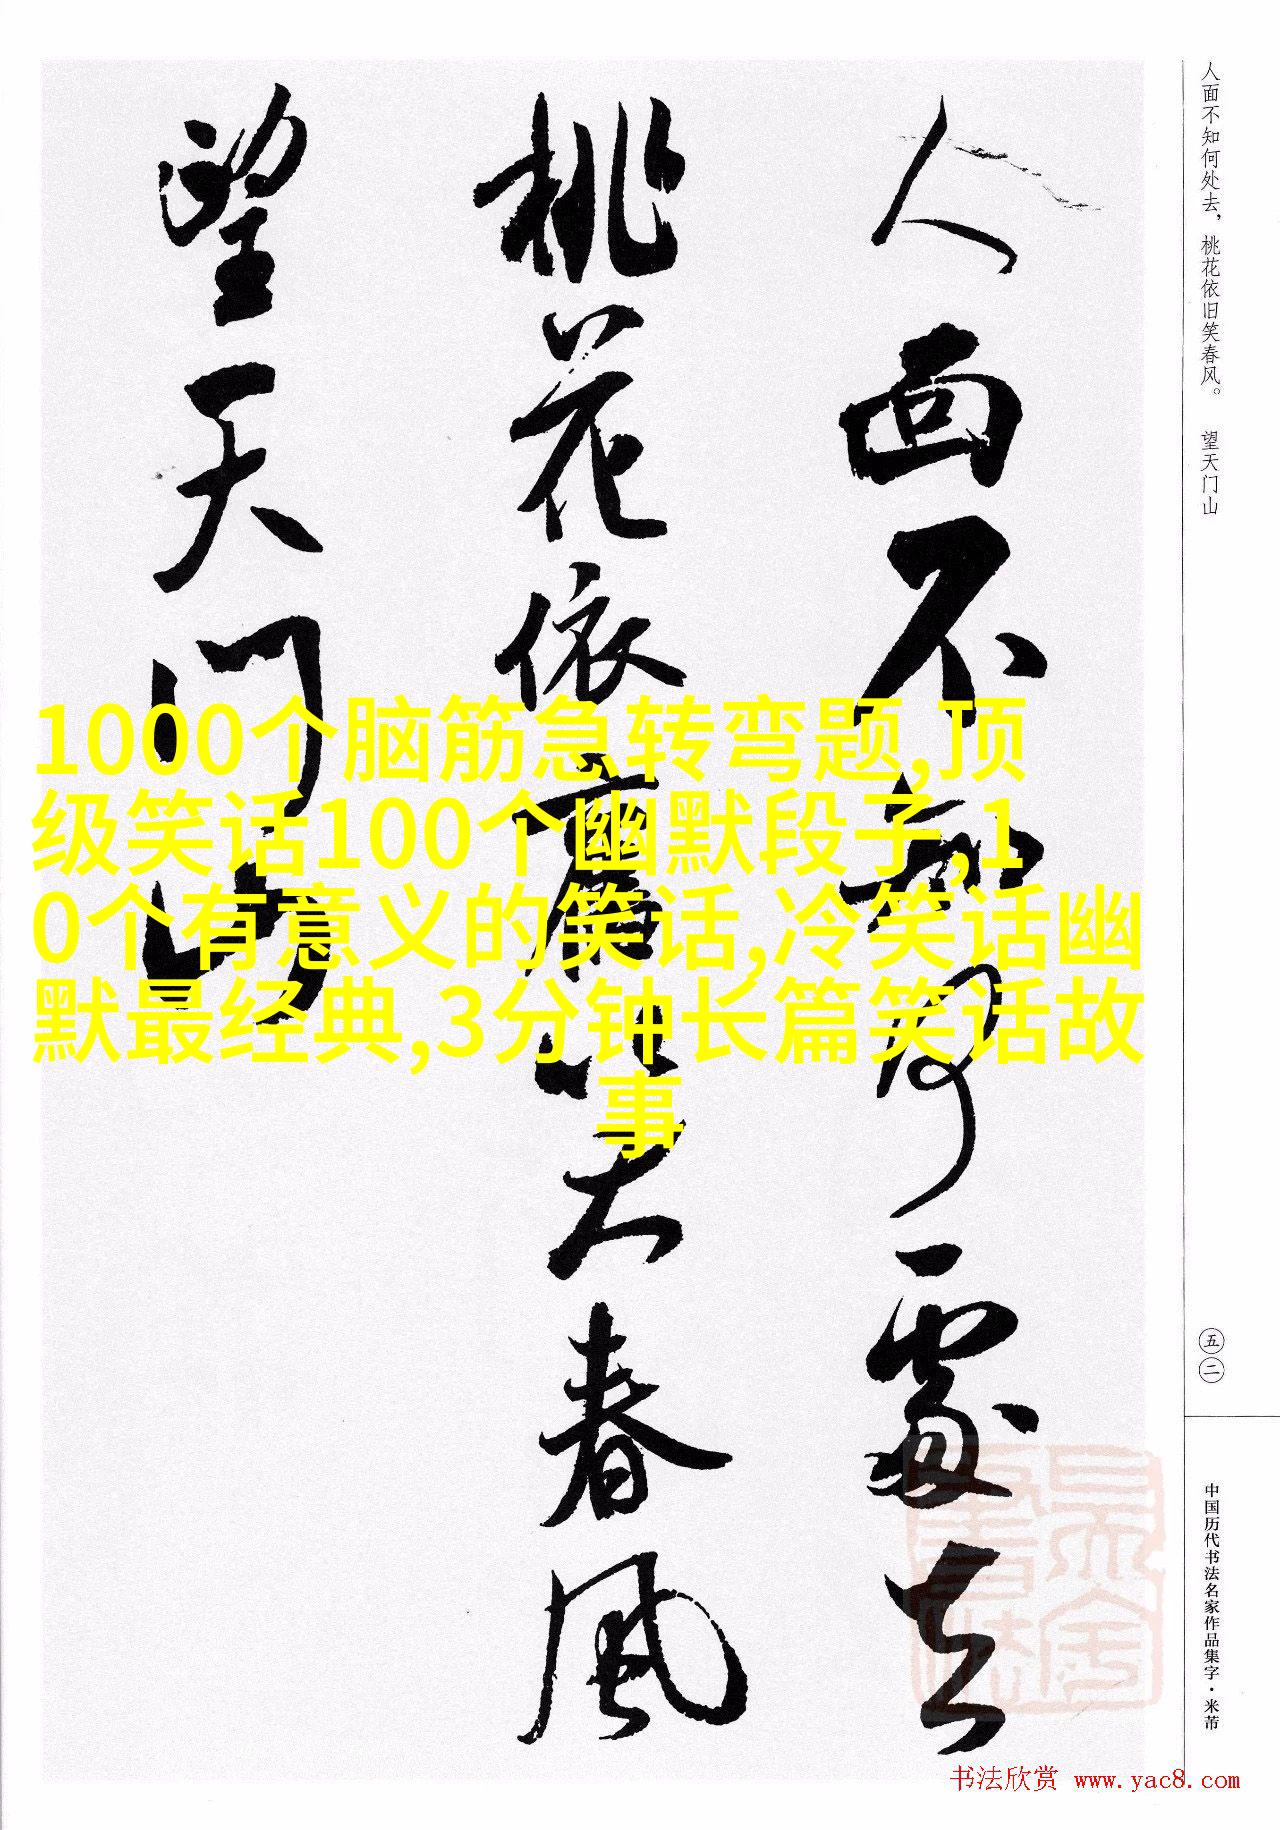 人面不知何處去
桃花依舊笑春風
望天门山
人面不知何处去，桃花依旧笑春风。 望天门山
1000个脑筋急转弯题,顶
级笑话100个幽默段子,1
0个有意义的笑话,冷笑话幽
默最经典,3分钟长篇笑话故
事
五二
中国历代书法名家作品集字·米芾
书法欣赏 www.yac8.com